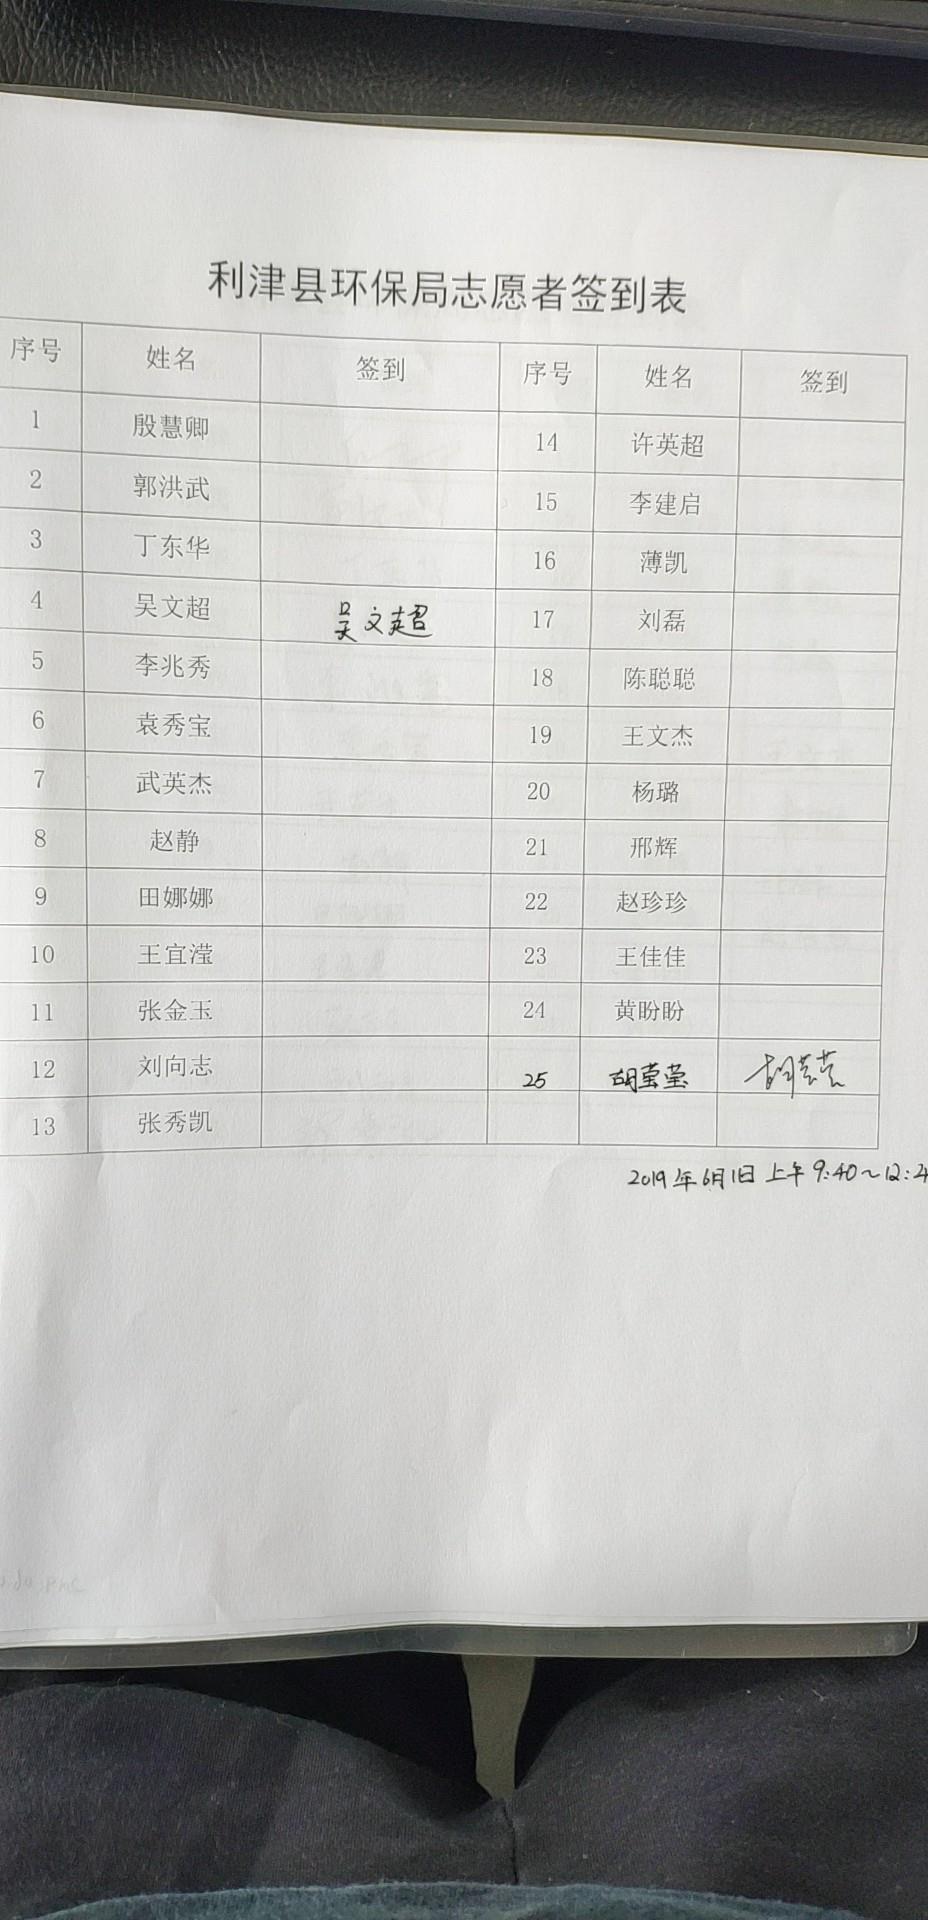 利津县环保局志愿者签到表
序号 姓名 签到 序号 姓名 签到
1 殷慧卿 14 许英超
2 郭洪武 15 李建启
3 丁东华 16 薄凯
4 吴文超 吴文超 17 刘磊
5 李兆秀 18 陈聪聪
6 袁秀宝 19 王文杰
7 武英杰 20 杨璐
8 赵静 21 邢辉
9 田娜娜 22 赵珍珍
10 王宜滢 23 王佳佳
11 张金玉 24 黄盼盼
12 刘向志 25 胡莹莹 胡莹莹
13 张秀凯
2019年6月1日上午9:40~12:4